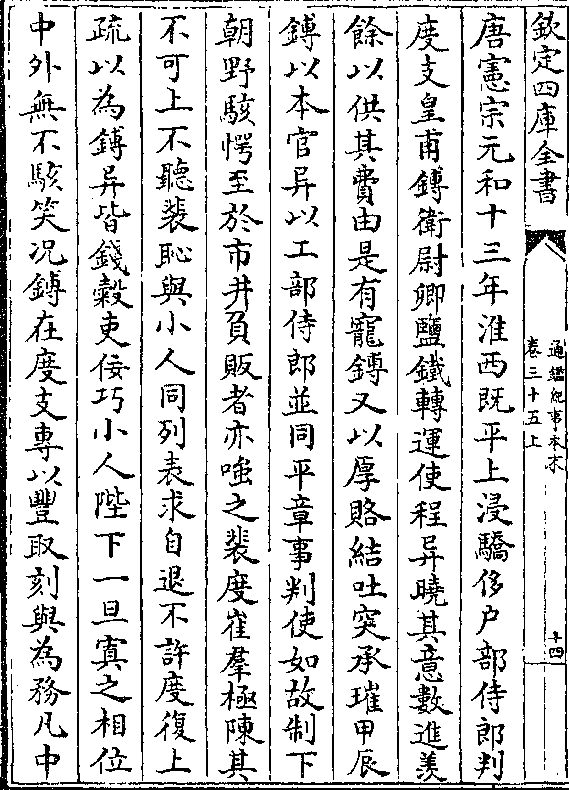 欽定四庫全書
通鑑紀事本末
卷三十五上
十四
唐憲宗元和十三年淮西既平上浸驕侈户部侍郎判
度支皇甫鎛衛尉卿鹽鐵轉運使程异曉其意數進羨
餘以供其費由是有寵鎛又以厚賂結吐突承璀甲辰
鎛以本官异以工部侍郎並同平章事判使如故制下
朝野駭愕至於市井負販者亦嗤之裴度崔羣極陳其
不可上不聽裴恥與小人同列表求自退不許度復上
疏以為鎛异皆錢穀吏佞巧小人陛下一旦寘之相位
中外無不駭笑况鎛在度支專以豐取刻與為務凡中